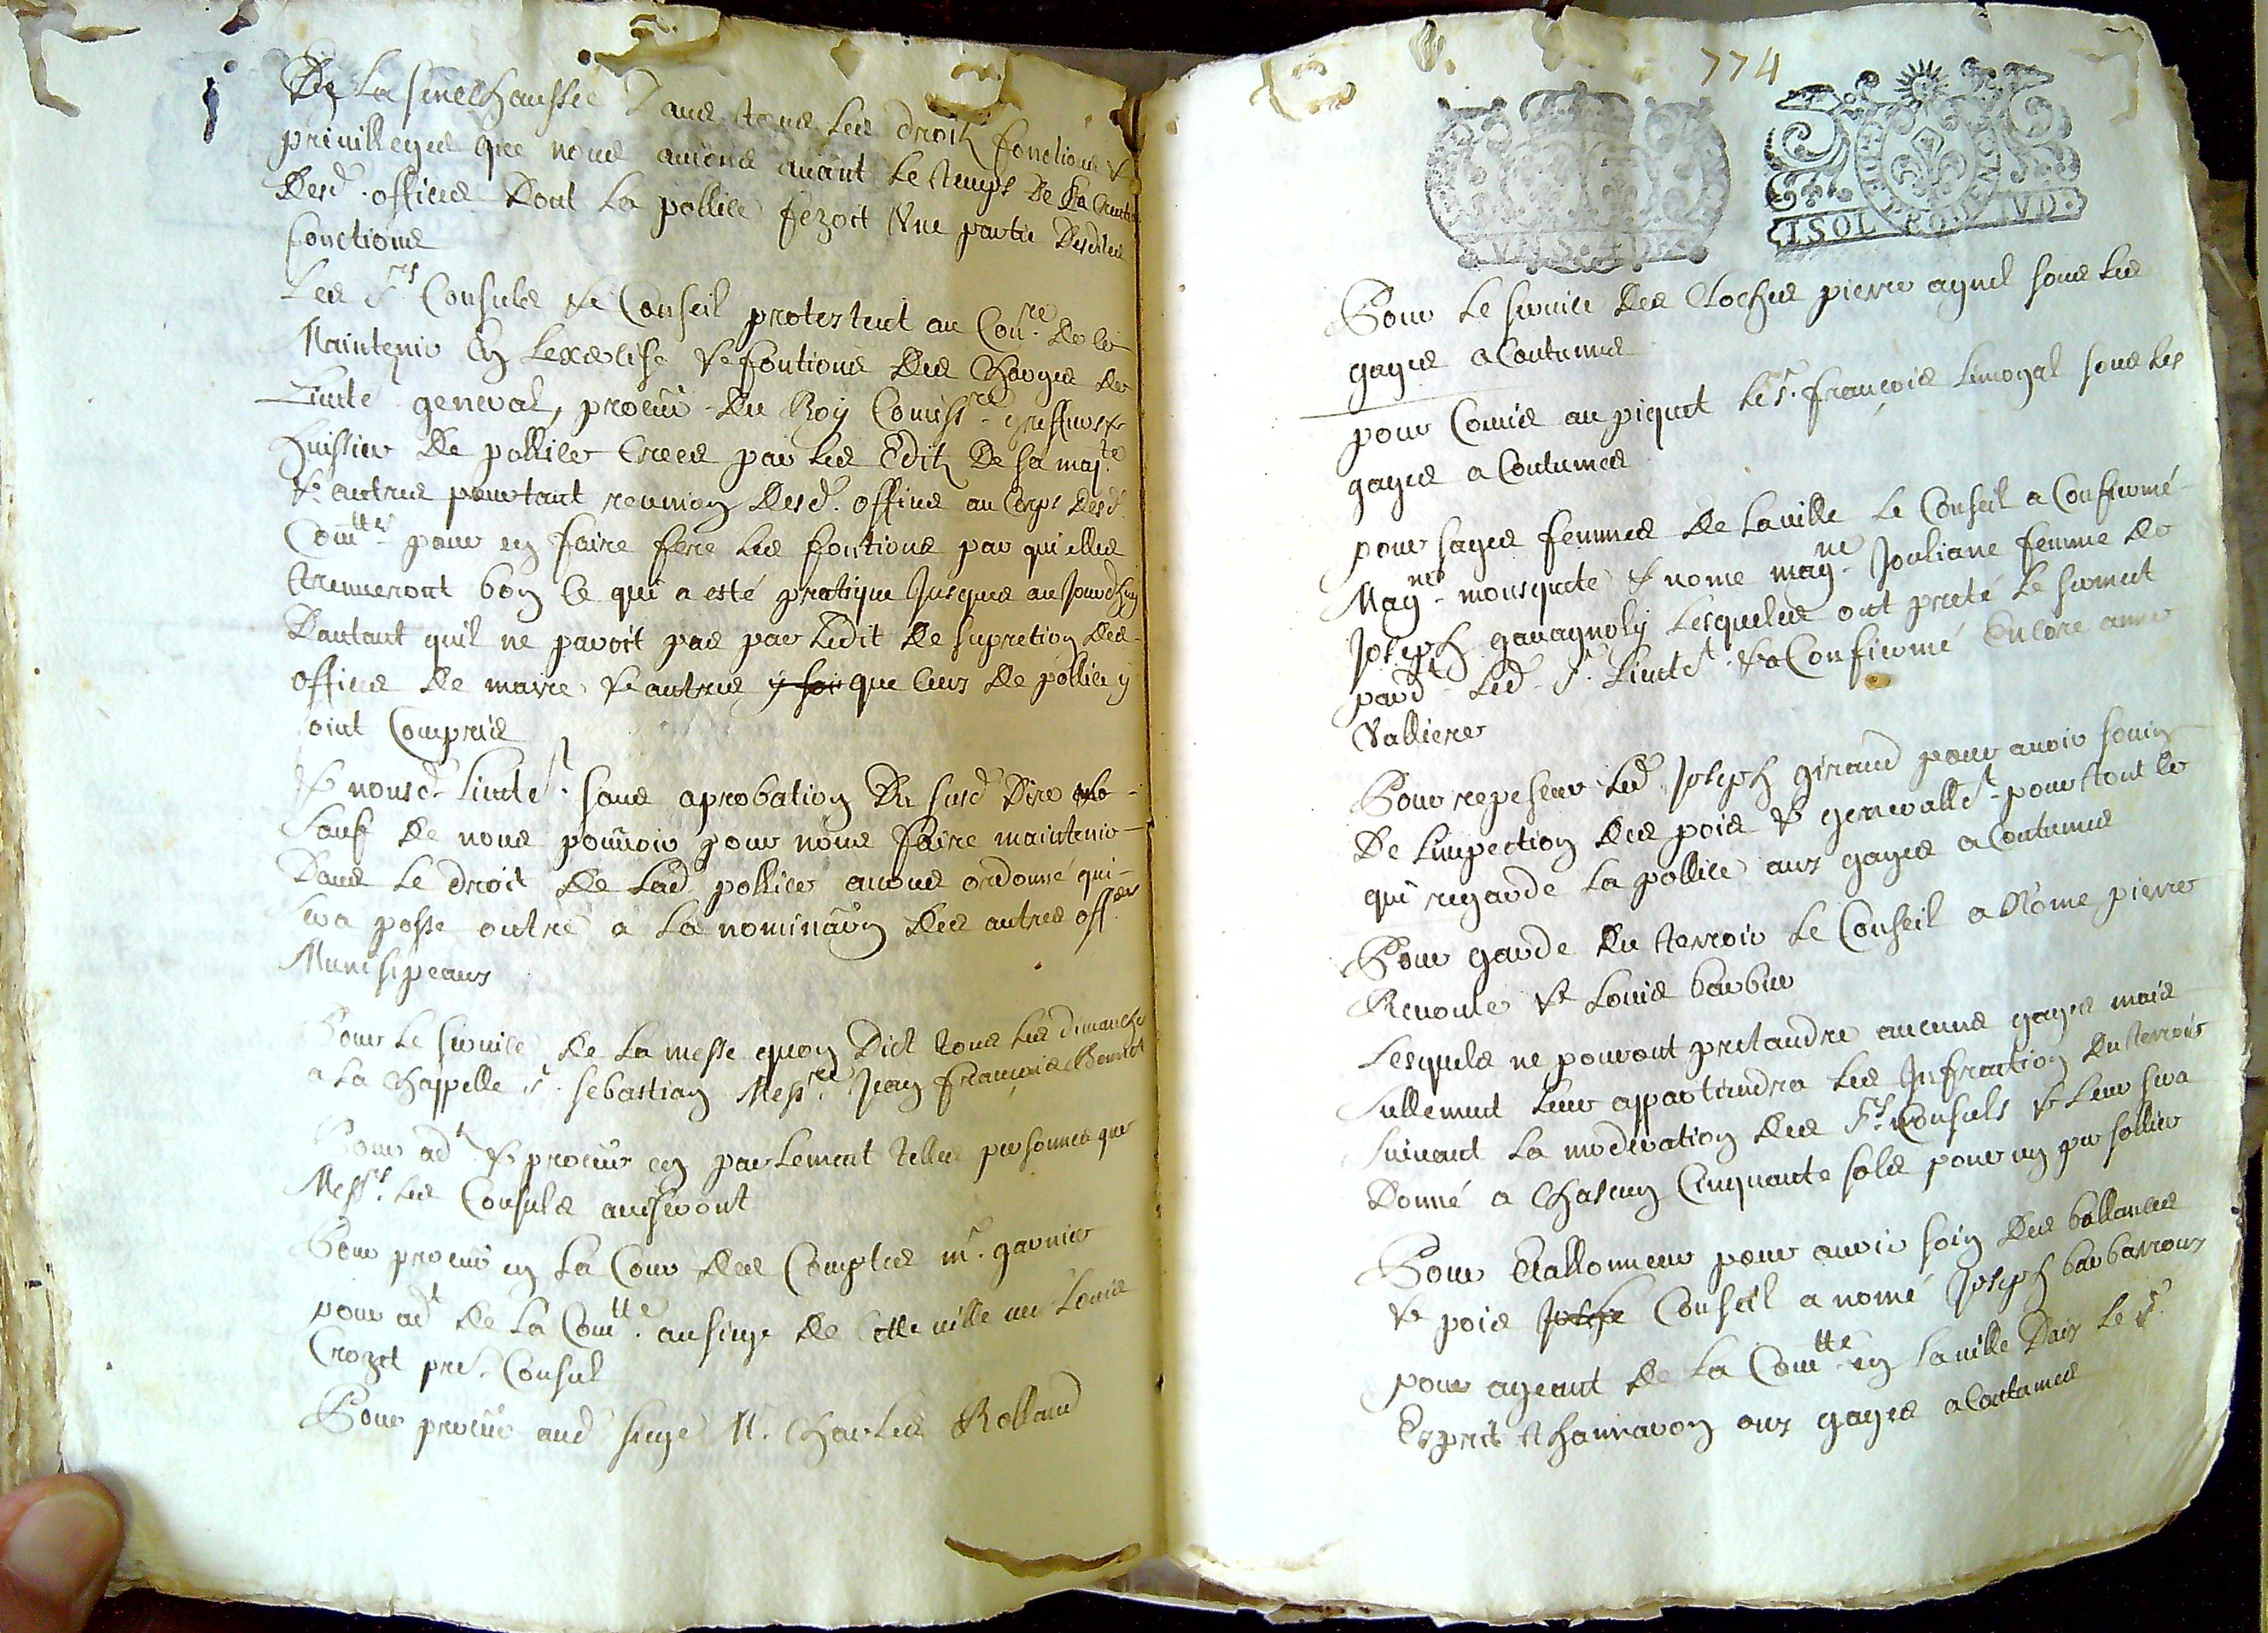 De La senechaussée Dans tous Les droitz fonctions &
privilleges que nous avions avant Le temps De La Creation
Desd. offices Dont La pollice fezoit Une partie Desdites
fonctions
Les Srs Consuls & Conseil protestent au Conre De se
Maintenir En Lexercise & fontions Des Charges De
Liute general, procur Du Roy Comissre greffiers &
huissier De pollice Crees par Les Editz De sa majte
& autres pourtant reunion Desd. offices au Corps Desd.
Comttes pour en faire fere Les fontions par qu'elles
treuveront bon Ce qui a esté pratique Jusques au Jourdhuy
Dautant quil ne paroit pas par Ledit De supretion Des
offices De maire & autres y soi que Ceux De pollice y
soint Compris
& nousd. Liutet sans aprobation Du susd Dire
Sauf De nous pourvoir pour nous faire maintenir
Dans Le droit De Lad. pollice avons ordonné qui
sera passe outre a La nominaon Des autres offers
Munisipeaux
Pour Le service De La messe quon Dict tous Les dimanche
a La Chappelle St. Sebastian Messre Jean françois Benoict
Pour adt & procur en parlement telles personnes que
Messrs. Les Consuls aviseront
Pour procur en La Cour Des Comptes mr. garnier
pour adt De La Comtte. au siege De Cette ville me Louis
Crozet pre. Consul
Pour procur aud siege M. Charles Rolland
774
ISOL
Pour Le service Des Cloches pierre agnel sous Les
gages aCoutumes
pour Comis au piquet Le Sr. françois Limozal sous Les
gages aCoutumes
pour sages femmes De La ville Le Conseil a Confirmé
Magnes mousquete & nome magne Jouliane femme De
Joseph gavagnoly Lesquelles ont preté Le serment
pardt Led. Sr. Liutet. & a Confirmé Encore anne
Valliere
Pour repeseur Led Joseph giraud pour avoir souin
De Linspection Des pois & generallet pour tout Ce
qui regarde La pollice aux gages aCoutumes
Pour garde Du terroir Le Conseil a Nome pierre
Revoule & Louis barbier
Lesquels ne pouront pretandre aucuns gages mais
sullement Leur appartiendra Les Infraction Du terroir
suivant La moderation Des Srs Consuls & Leur sera
Donné a Chascun Cinquante sols pour un per sollier
Pour Etallonneur pour avoir soin Des ballances
& pois Conseil a nomé Joseph barbaroux
pour ageant De La Comtte en La ville Daix Le Sr.
Esprit Channavon aux gages aCoutumes